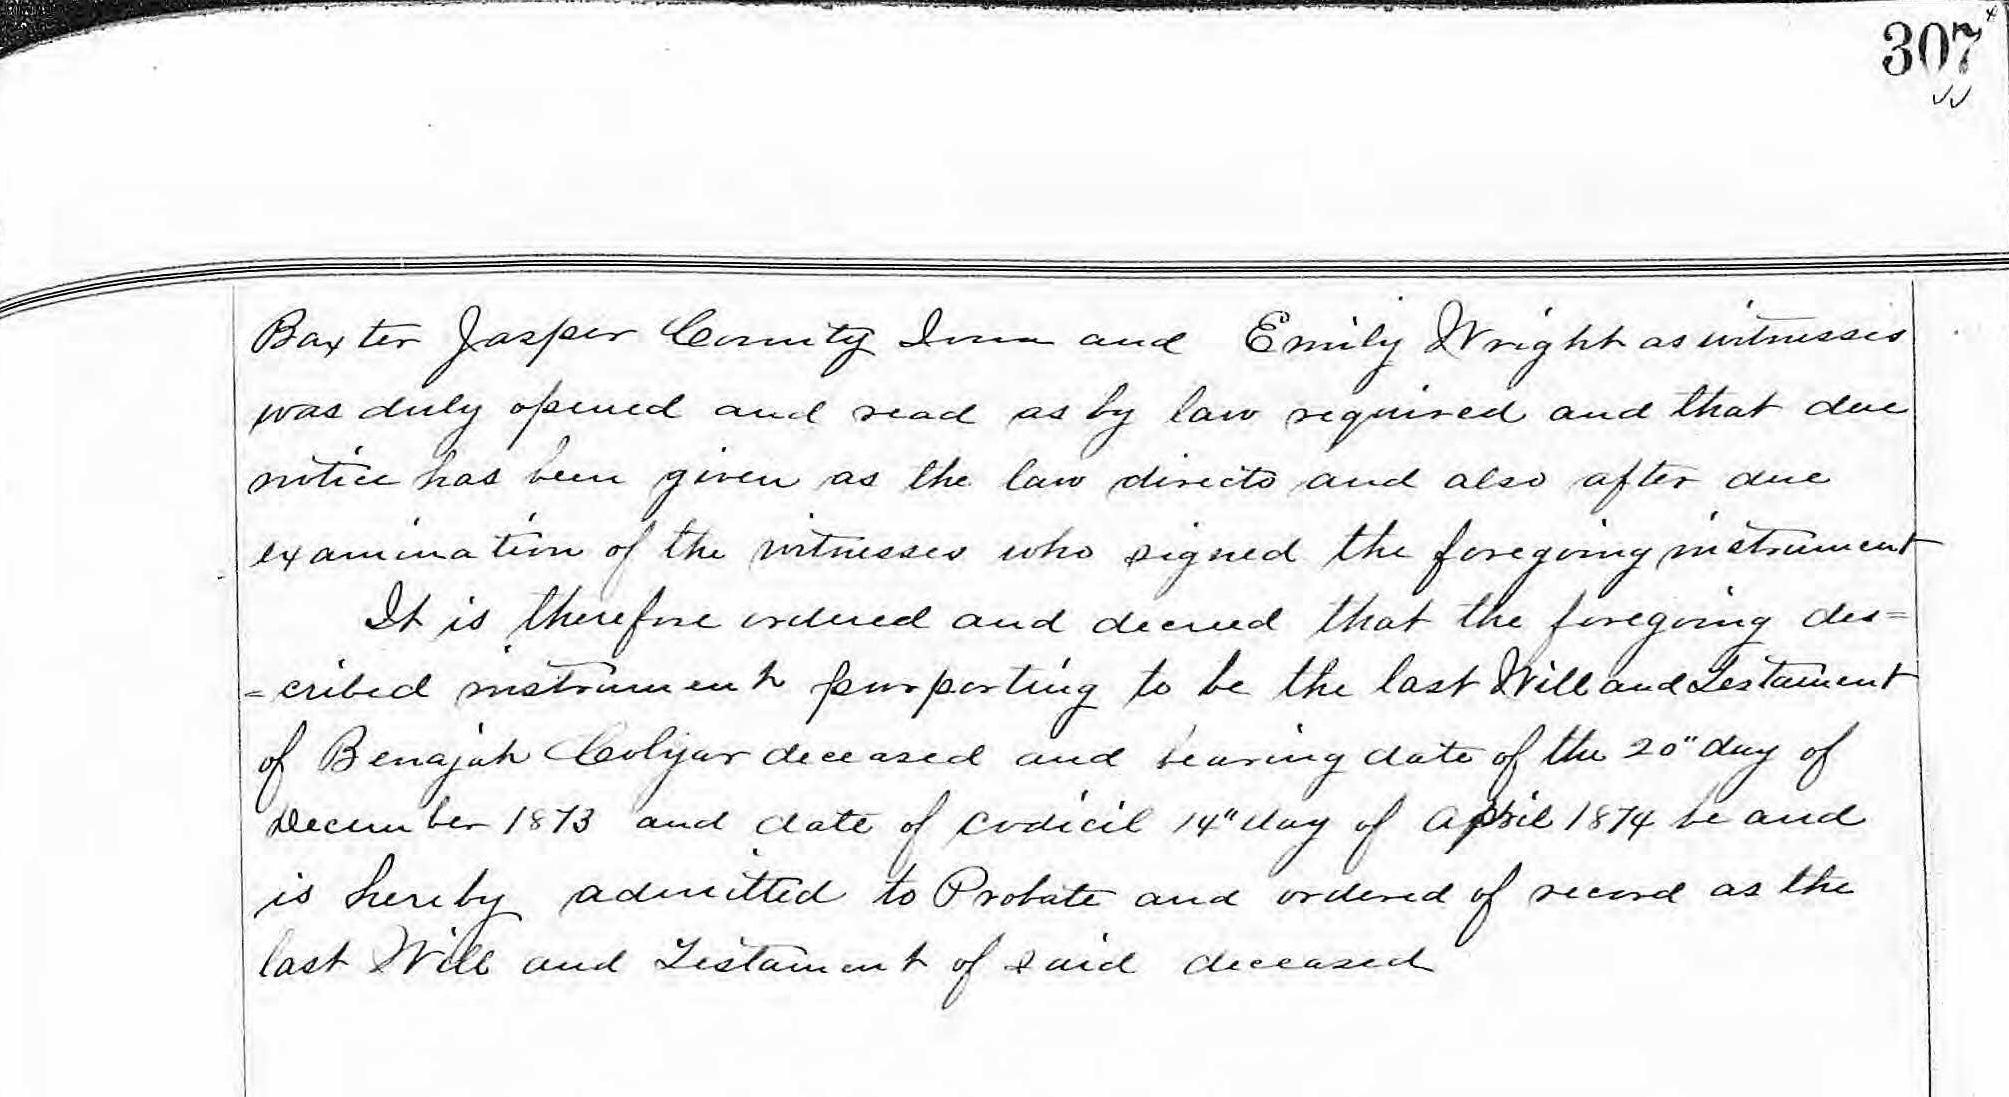 307
Baxter Jasper County Iowa and Emily Wright as witnesses
was duly opened and read as by law required and that due
notice has been given as the law directs and also after due
examination of the witnesses who signed the foregoing instrument
It is therefore ordered and decreed that the foregoing des=
=cribed instrument purporting to be the last Will and Testament
of Benajah Colyar deceased and bearing date of the 20" day of
December 1873 and date of codicil 14" day of April 1874 be and
is hereby admitted to Probate and ordered of record as the
last Will and Testament of said deceased